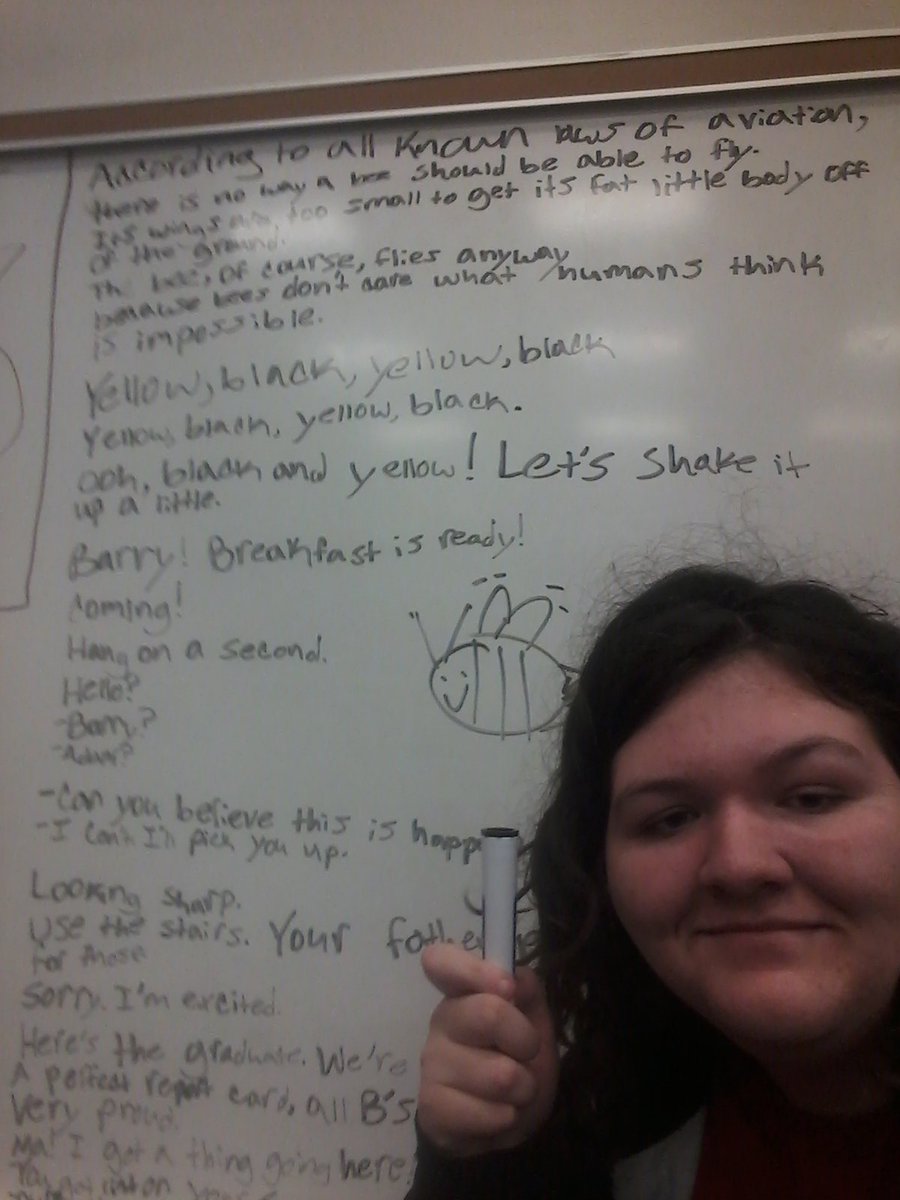 According to all known laws of aviation,
there is no way a bee should be able to fly.
Its wings are too small to get its fat little body off
of the ground.
The bee, of course, flies anyway
because bees don't care what humans think
is impossible.
Yellow, black, yellow, black
Yellow, black, yellow, black.
ooh, black and yellow! Let's shake it
up a little.
Barry! Breakfast is ready!
Coming!
Hang on a second.
Hello?
-Barry?
-Adam?
-Can you believe this is happ
-I can't I'll pick you up.
Looking sharp.
Use the stairs. Your father
for those
Sorry. I'm excited.
Here's the graduate. We're
A perfect report card, all B's
Very proud.
Ma! I got a thing going here!